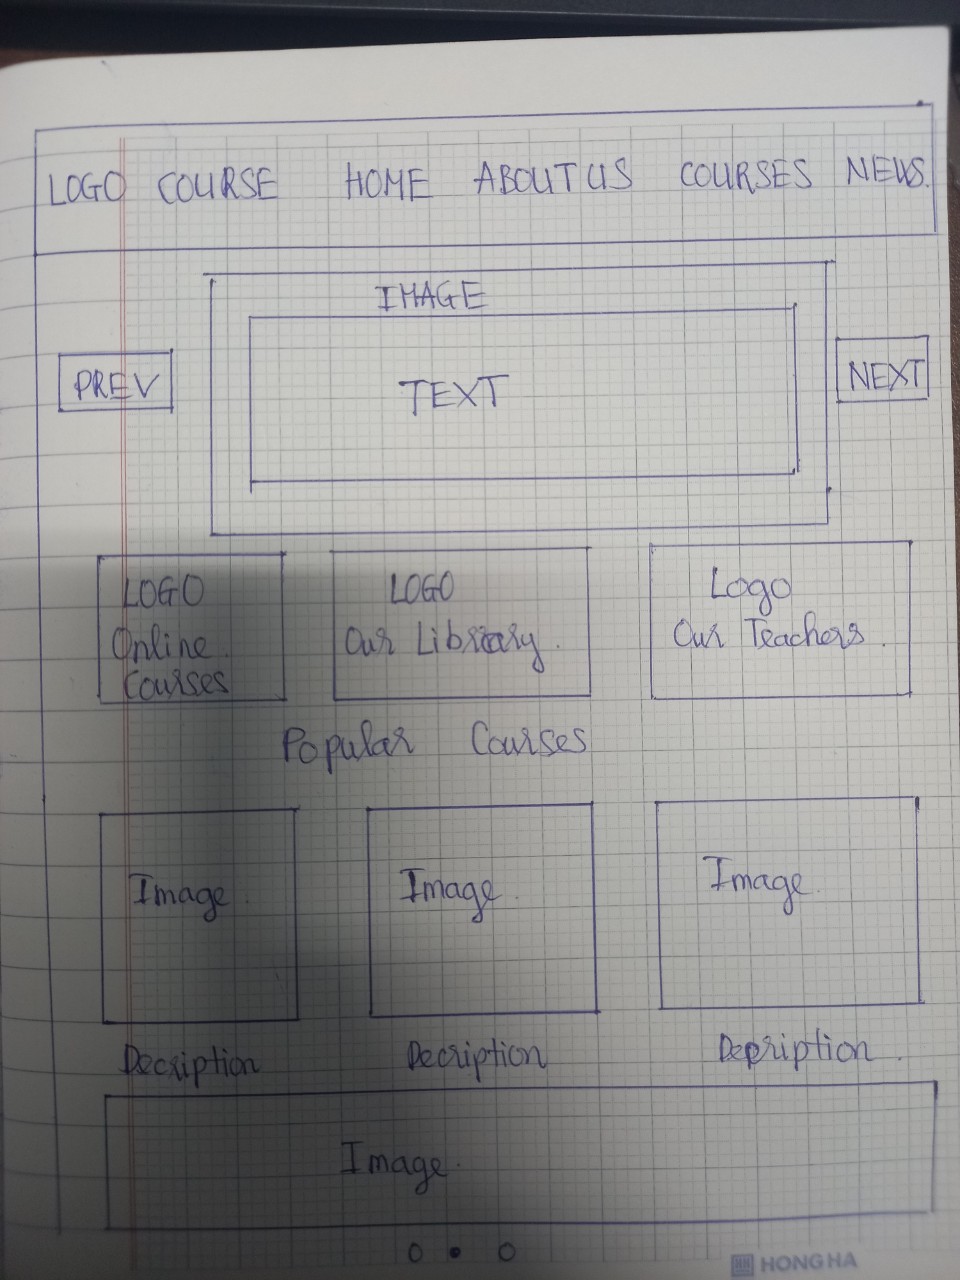 LOGO COURSE HOME ABOUT US COURSES NEWS.
IMAGE
PREV
TEXT
NEXT
LOGO
Online
Courses
LOGO
Our Library.
Logo
Our Teachers.
Popular Courses
Image.
Image.
Image.
Decription
Decription
Depription.
Image.
HONG HA